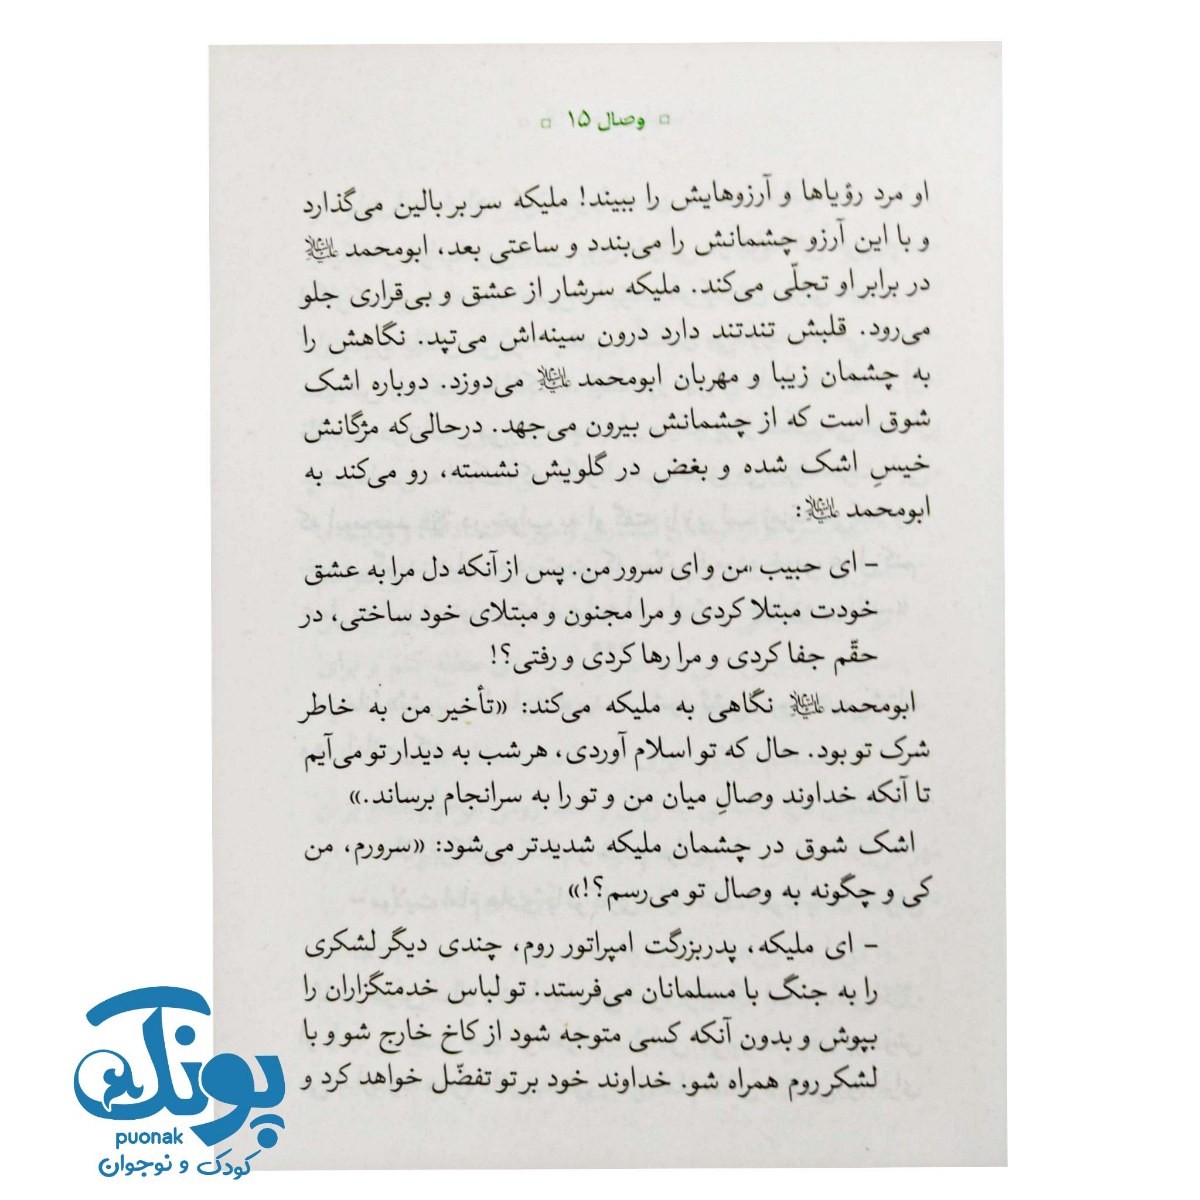 ▫ وصال ۱۵ ▫
او مرد رؤیاها و آرزوهایش را ببیند! ملیکه سر بر بالین می‌گذارد
و با این آرزو چشمانش را می‌بندد و ساعتی بعد، ابومحمد علیه‌السلام
در برابر او تجلّی می‌کند. ملیکه سرشار از عشق و بی‌قراری جلو
می‌رود. قلبش تندتند دارد درون سینه‌اش می‌تپد. نگاهش را
به چشمان زیبا و مهربان ابومحمد علیه‌السلام می‌دوزد. دوباره اشک
شوق است که از چشمانش بیرون می‌جهد. درحالی‌که مژگانش
خیسِ اشک شده و بغض در گلویش نشسته، رو می‌کند به
ابومحمد علیه‌السلام:
- ای حبیب من و ای سرور من. پس از آنکه دل مرا به عشق
خودت مبتلا کردی و مرا مجنون و مبتلای خود ساختی، در
حقّم جفا کردی و مرا رها کردی و رفتی؟!
ابومحمد علیه‌السلام نگاهی به ملیکه می‌کند: «تأخیر من به خاطر
شرک تو بود. حال که تو اسلام آوردی، هر شب به دیدار تو می‌آیم
تا آنکه خداوند وصالِ میان من و تو را به سرانجام برساند.»
اشک شوق در چشمان ملیکه شدیدتر می‌شود: «سرورم، من
کی و چگونه به وصال تو می‌رسم؟!»
- ای ملیکه، پدربزرگت امپراتور روم، چندی دیگر لشکری
را به جنگ با مسلمانان می‌فرستد. تو لباس خدمتگزاران را
بپوش و بدون آنکه کسی متوجه شود از کاخ خارج شو و با
لشکر روم همراه شو. خداوند خود بر تو تفضّل خواهد کرد و
پونک
puonak
کودک و نوجوان